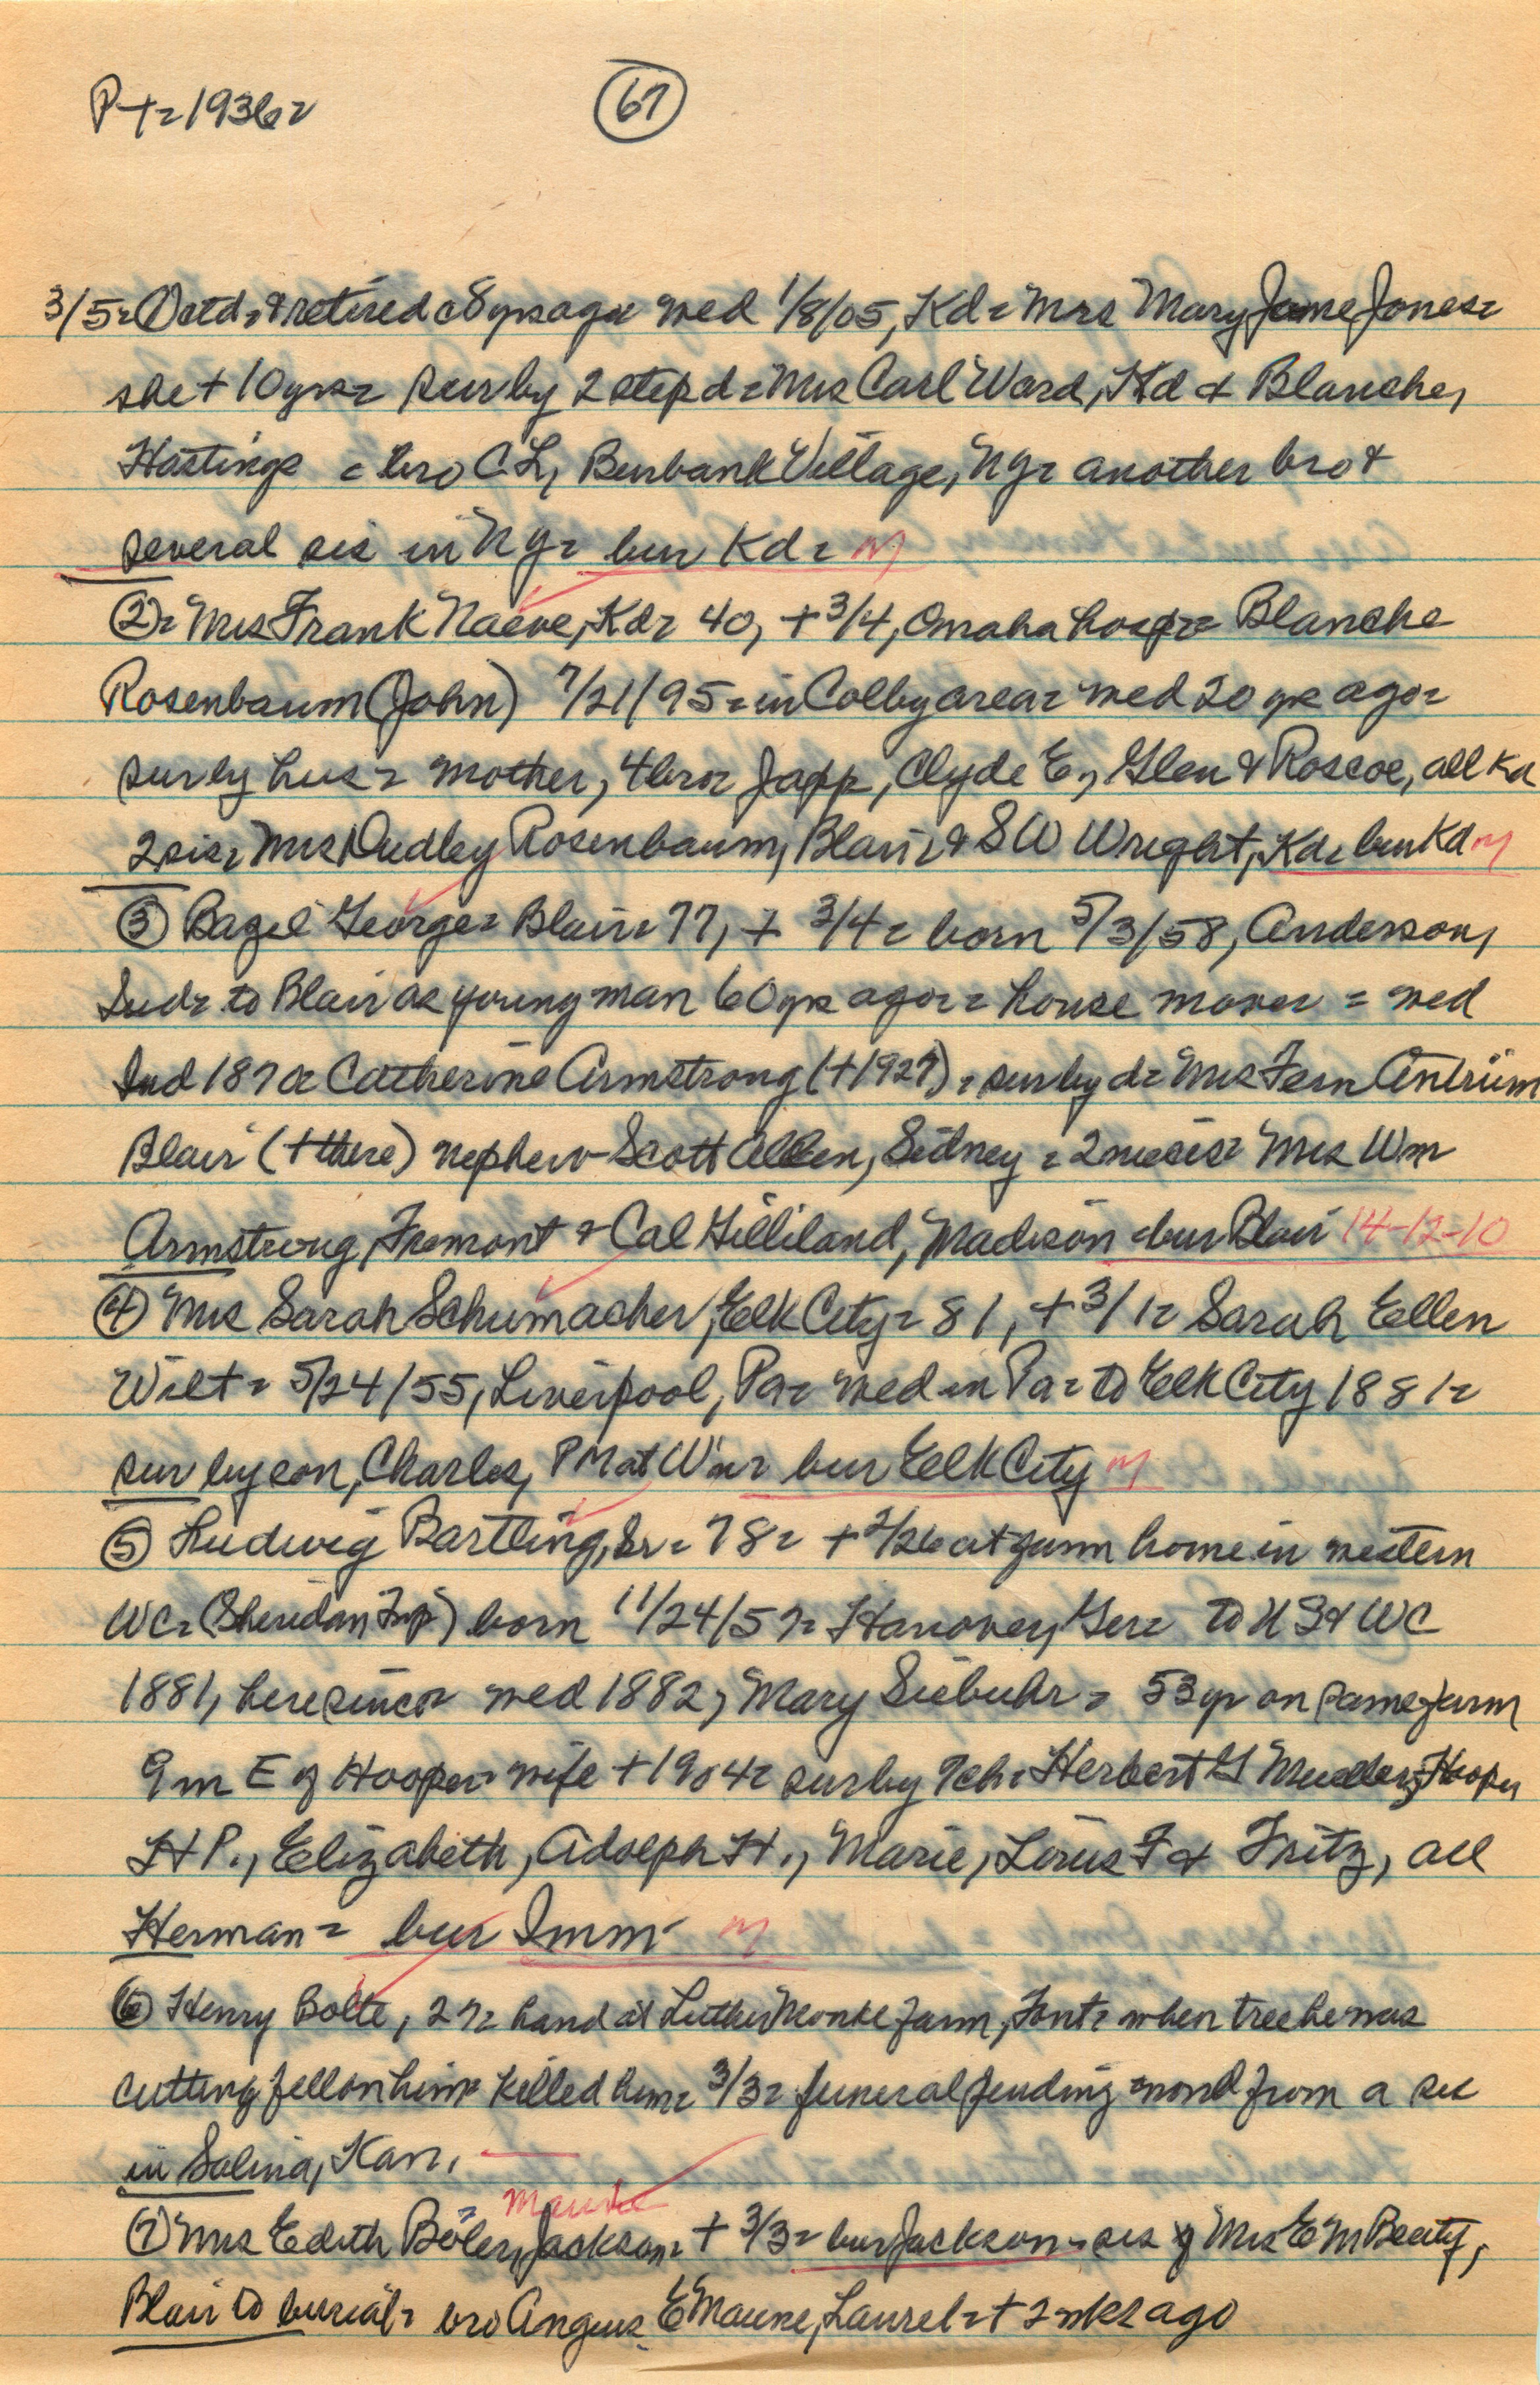 P+=1936= 67
3/5= & retired c8yrs ago= wed 1/8/05, Kd= Mrs Mary Jane Jones=
she + 10yrs= sur by 2 stepd= Mrs Carl Ward, Kd & Blanche,
Hastings = bro C L, Burbank Village, Ny= another bro &
several sis in Ny= bur Kd= M
②= Mrs Frank Naeve, Kd= 40, + 3/4, Omaha hosp= Blanche
Rosenbaum (John) 7/21/95= in Colby area= wed 20 yrs ago=
sur by hus= mother, 4 bro= Japp, Clyde E, Glen & Roscoe, all Kd
2 sis= Mrs Dudley Rosenbaum, Blair= & S W Wright, Kd= bur Kd M
③ Bazel George= Blair= 77, + 3/4= born 5/3/58, Anderson,
Ind= to Blair as young man 60yrs ago= = house mover = wed
Ind 187 Catherine Armstrong (+1927)= sur by d= Mrs Fern Antrim
Blair (+ there) nephew- Scott Allen, Sidney = 2 nieces= Mrs Wm
Armstrong, Fremont & Cal Gilliland, Madison = bur Blair 14-12-10
④ Mrs Sarah Schumacher, Elk City= 81, + 3/1= Sarah Ellen
Wilt= 5/24/55, Liverpool, Pa= wed in Pa= to Elk City 1881=
sur by son, Charles, PM at Wn= bur Elk City M
⑤ Ludwig Bartling, Sr= 78= + 2/26 at farm home in western
WC= (Sheridan Twp) born 11/24/57= Hanover, Ger= to US & WC
1881, here since= wed 1882, Mary Siebuhr= 53 yr on same farm
9 m E of Hooper= wife + 1904= sur by 7ch= Herbert G Mueller, Hooper
H P., Elizabeth, Adolph H., Marie, Louis F & Fritz, all
Herman= bur Imm- M
⑥ Henry Bolte, 27= hand at Luther Monke farm, Font= when tree he was
cutting fell on him= killed him= 3/3= funeral pending word from a sis
in Salina, Kan.
Maune
⑦ Mrs Edith Boler, Jackson= + 3/3= bur Jackson= sis of Mrs E M Beaty,
Blair to burial= bro Angus E Maune, Laurel= + 2 wks ago